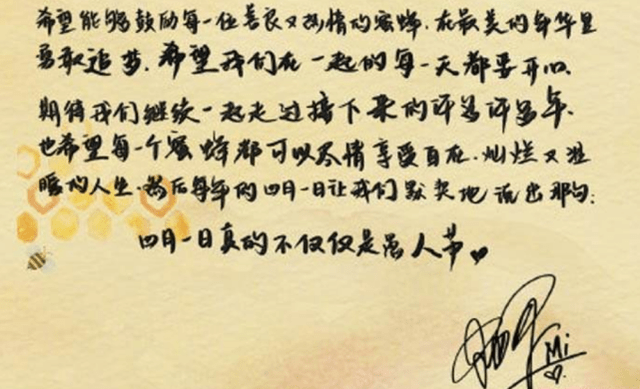 希望能够鼓励每一位善良又热情的蜜蜂.在最美的年华里
勇敢追梦.希望我们在一起的每一天都要开心.
期待我们继续一起走过接下来的许多许多年.
也希望每一个蜜蜂都可以尽情享受自在.灿烂又温
暖的人生.然后每年的四月一日让我们默契地说出那句:
四月一日真的不仅仅是愚人节
Mi